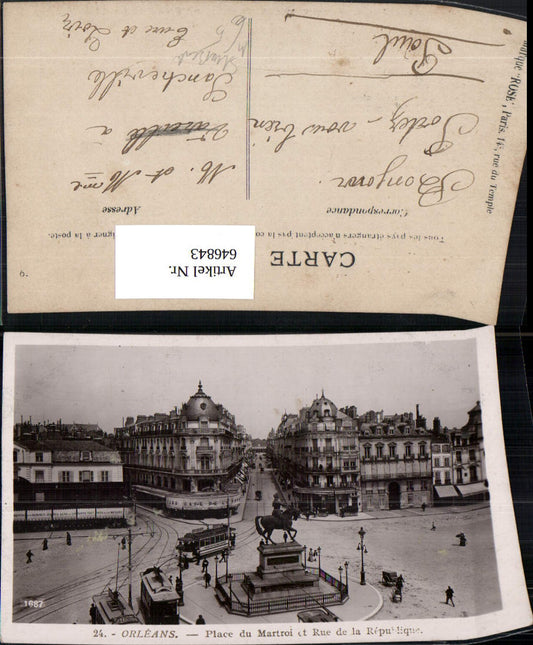 CARTE
Artikel Nr.
646843
Tous les pays étrangers n'acceptent pas la
à la poste.
Correspondance
Adresse
Bonjour.
Portez-vous bien
Paul
M. et Mme
à
Sancheville
Eure et Loir
"ROSE", Paris, rue du Temple
1687
24. - ORLÉANS. — Place du Martroi et Rue de la République.